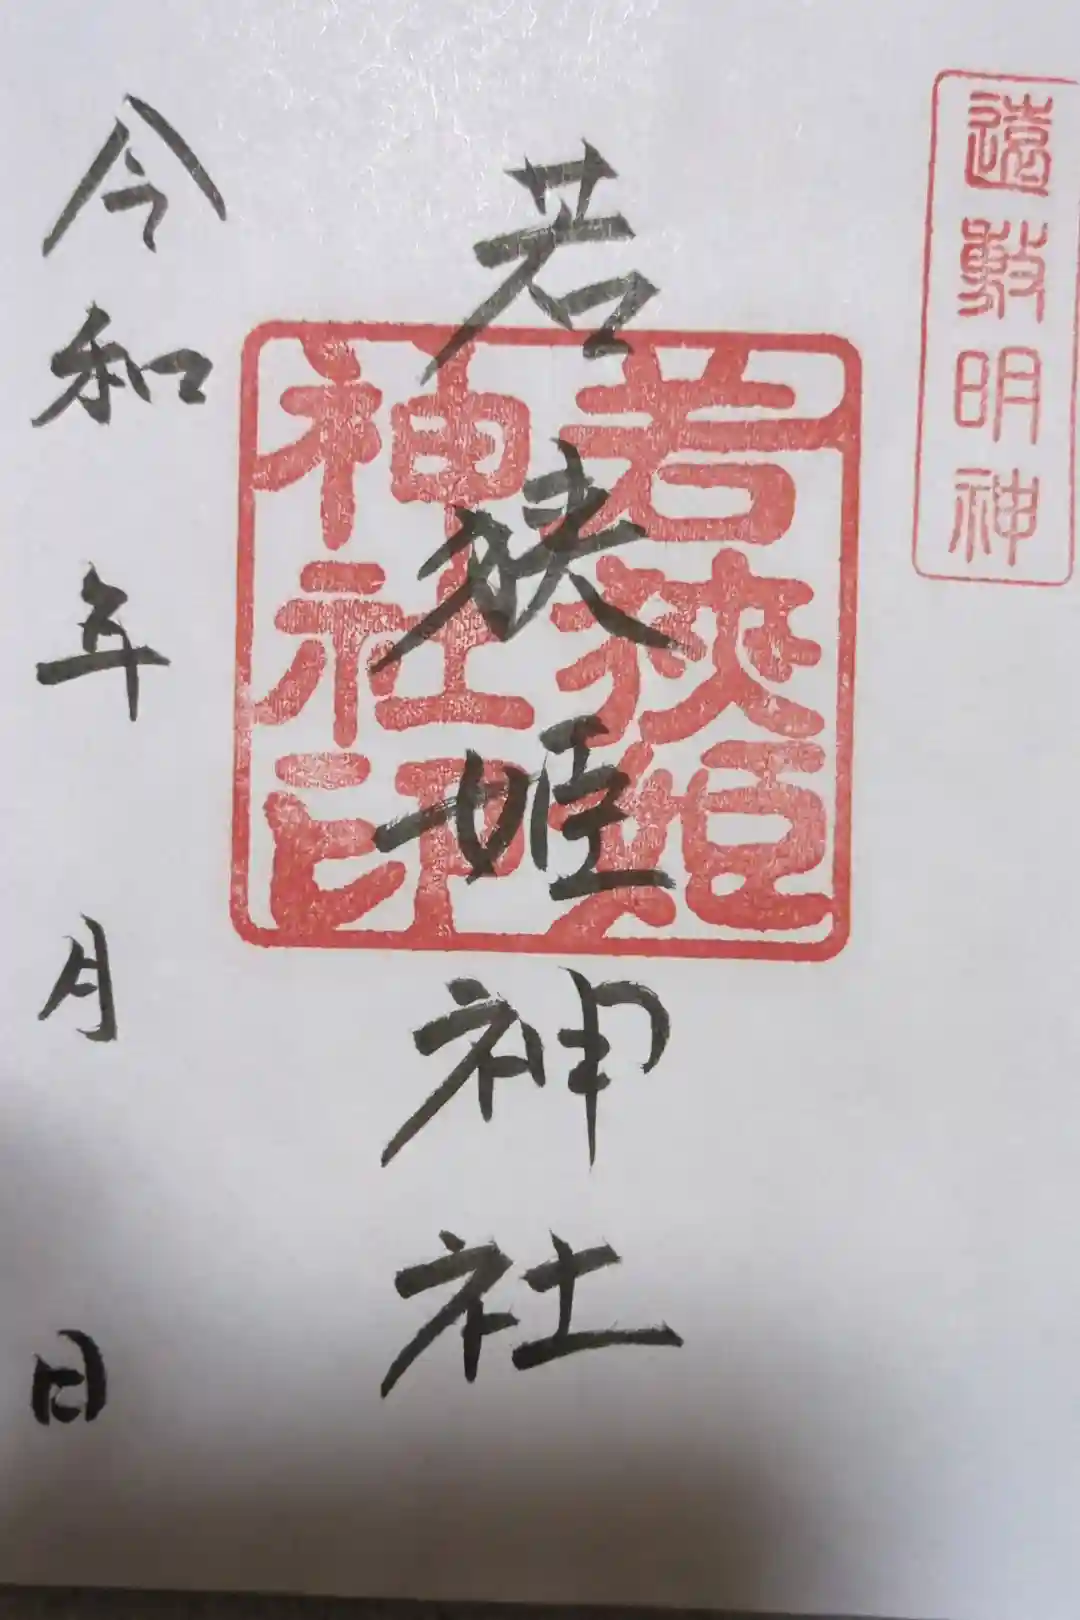 遠敷明神
若狭姫神社
若狭姫
神社印
令和 年 月 日